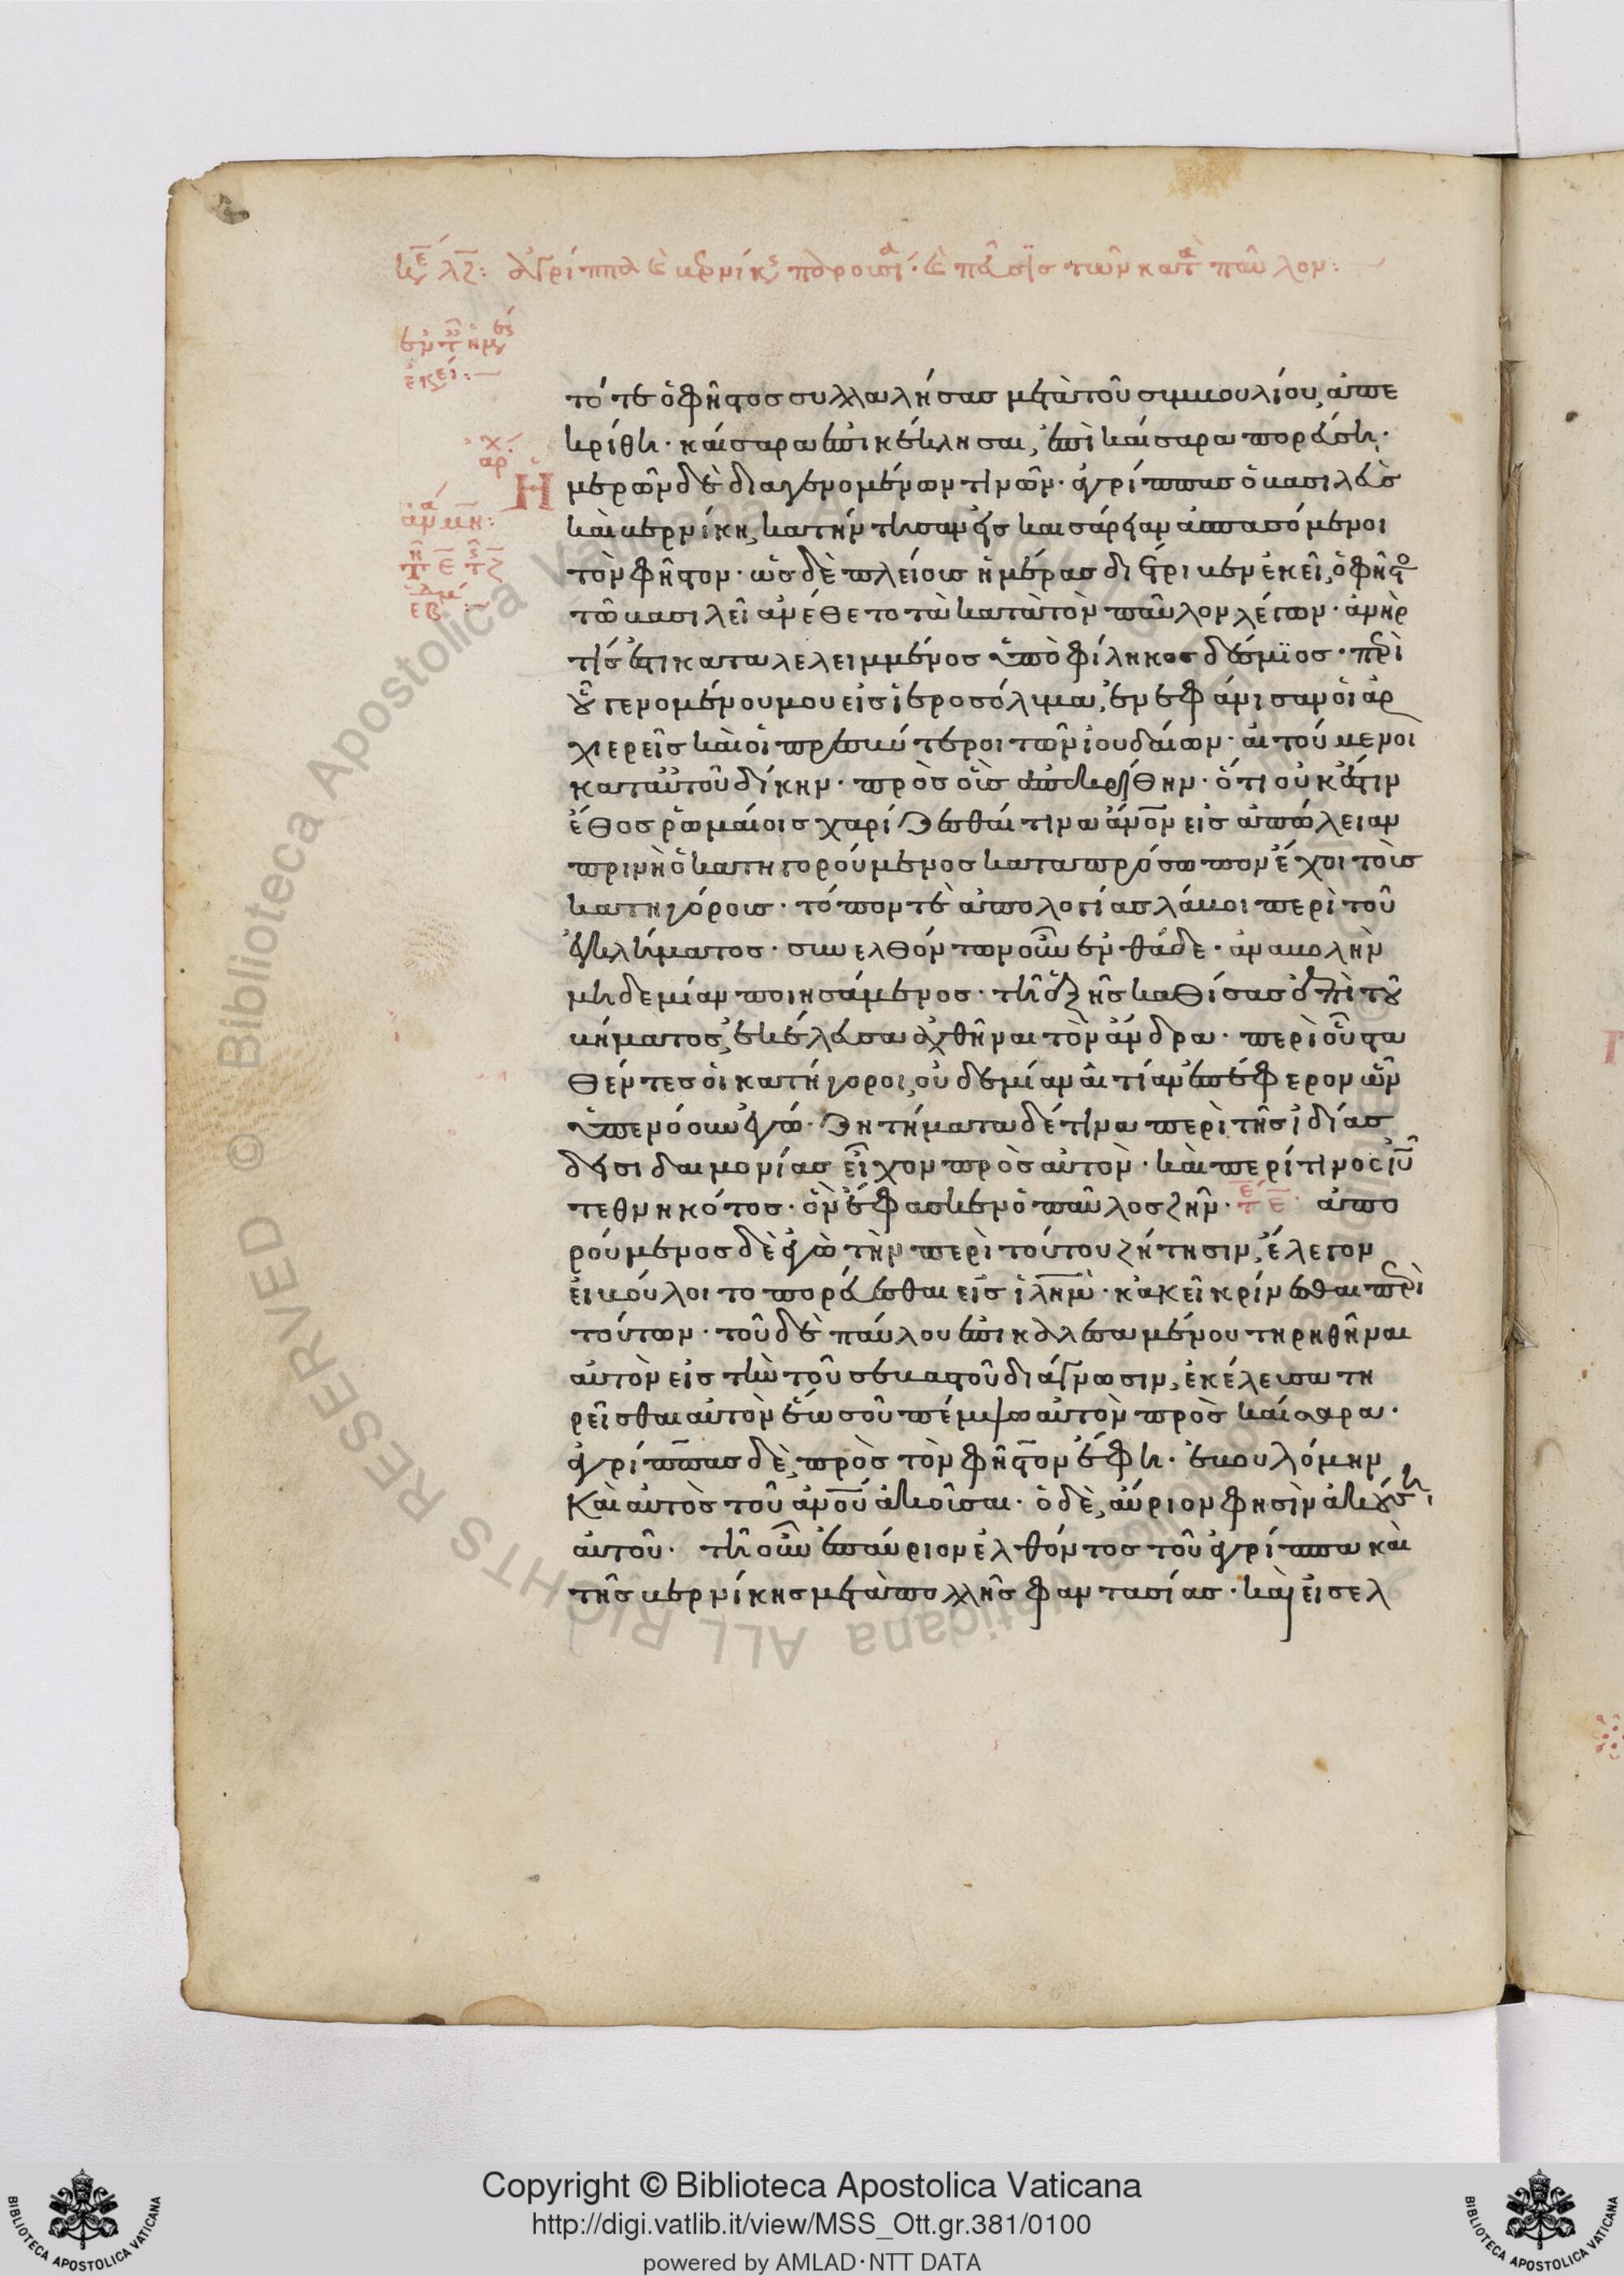 κε λζ: ἀγρίππα καὶ βερνίκης παρουσία· καὶ πεῦσις τῶν κατὰ παῦλον:
ἐν ταῖς ἡμέραις
ἐκεί:
χ
αρ
τότε ὁ φῆστος συλλαλήσας μετὰ τοῦ συμβουλίου, ἀπε
κρίθη· καίσαρα ἐπικέκλησαι, ἐπὶ καίσαρα πορεύση·
Ἡμερῶν δὲ διαγενομένων τινῶν· ἀγρίππας ὁ βασιλεὺς
καὶ βερνίκη, κατήντησαν εἰς καισάρειαν ἀσπασόμενοι
τὸν φῆστον· ὡς δὲ πλείους ἡμέρας διέτριβεν ἐκεῖ, ὁ φῆστο
τῶ βασιλεῖ ἀνέθετο τὰ κατὰ τὸν παῦλον λέγων· ἀνήρ
τίς ἐστι καταλελειμμένος ὑπὸ φίληκος δέσμϊος· περὶ
οὗ γενομένου μου εἰς ἱεροσόλυμα, ἐνεφάνισαν οἱ ἀρ
χιερεῖς καὶ οἱ πρεσβύτεροι τῶν ἰουδαίων· αἰτούμενοι
κατ αὐτοῦ δίκην· πρὸς οὓς ἀπεκρίθην· ὅτι οὐκ ἔστιν
ἔθος ῥωμαίοις χαρίζεσθαί τινα ἄνον εἰς ἀπώλειαν
πρινὴ ὁ κατηγορούμενος κατὰ πρόσωπον ἔχοι τοὺς
κατηγόρους· τόπον τὲ ἀπολογίας λάβοι περὶ τοῦ
ἐγκλήματος· συνελθόντων οὖν ἐνθάδε· ἀναβολὴν
μηδεμίαν ποιησάμενος· τῆ ἑξῆς καθίσας ἐπὶ τοῦ
βήματος, ἐκέλευσα ἀχθῆναι τὸν ἄνδρα· περὶ οὗ στα
θέντες οἱ κατήγοροι, οὐδεμίαν αἰτίαν ἐπέφερον ὧν
ὑπενόουν ἐγώ· ζητήματα δέ τινα περὶ τῆς ἰδίας
δεισιδαιμονίας εἶχον πρὸς αὐτὸν· καὶ περί τινος ἰυ
τεθνηκότος· ὃν ἔφασκεν ὁ παῦλος ζῆν· τε ε· ἀπο
ρούμενος δὲ ἐγὼ τὴν περὶ τούτου ζήτησιν, ἔλεγον
εἰ βούλοιτο πορεύεσθαι εἰς ἱλημ· κἀκεῖ κρίνεσθαι περὶ
τούτων· τοῦ δὲ παύλου ἐπικαλεσαμένου τηρηθῆναι
αὐτὸν εἰς τὴν τοῦ σεβαστοῦ διάγνωσιν, ἐκέλευσα τη
ρεῖσθαι αὐτὸν ἕως οὗ πέμψω αὐτὸν πρὸς καίσαρα·
ἀγρίππας δὲ, πρὸς τὸν φῆστον ἔφη· ἐβουλόμην
Καὶ αὐτὸς τοῦ ἀνου ἀκοῦσαι· ὁ δὲ, αὔριον φησὶν ἀκούση
αὐτοῦ· τῆ οὖν ἐπαύριον ἐλθόντος τοῦ ἀγρίππα καὶ
τῆς βερνίκης μετὰ πολλῆς φαντασίας· καὶ εἰσελ
Biblioteca Apostolica Vaticana ALL RIGHTS RESERVED ©
Copyright © Biblioteca Apostolica Vaticana
http://digi.vatlib.it/view/MSS_Ott.gr.381/0100
powered by AMLAD·NTT DATA
BIBLIOTECA APOSTOLICA VATICANA
BIBLIOTECA APOSTOLICA VATICANA